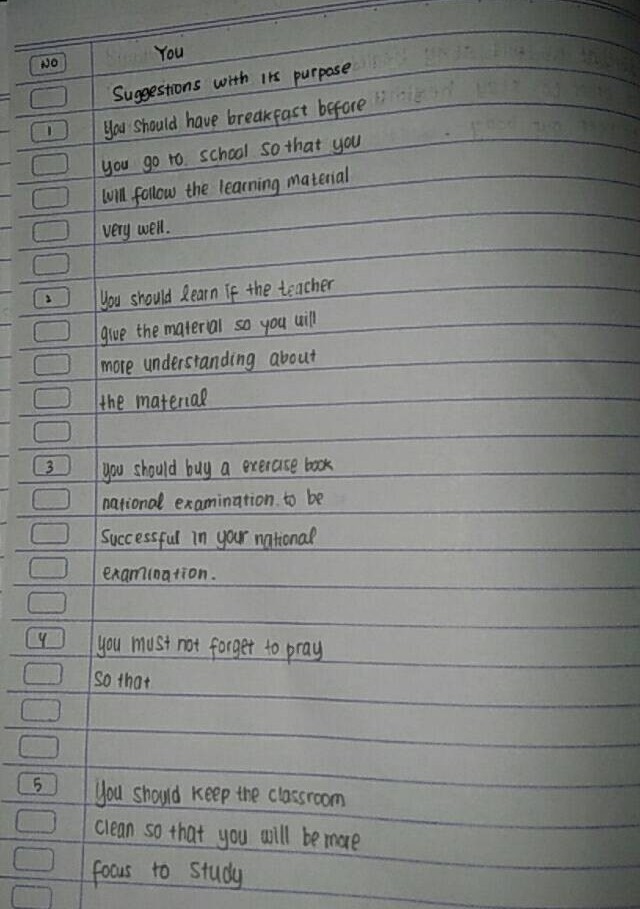 NO You
Suggestions with its purpose
1 You should have breakfast before
you go to school so that you
will follow the learning material
very well.
2 You should learn if the teacher
give the material so you will
more understanding about
the material
3 you should buy a exercise book
national examination to be
Successful in your national
examination.
4 you must not forget to pray
so that
5 You should keep the classroom
clean so that you will be more
focus to study